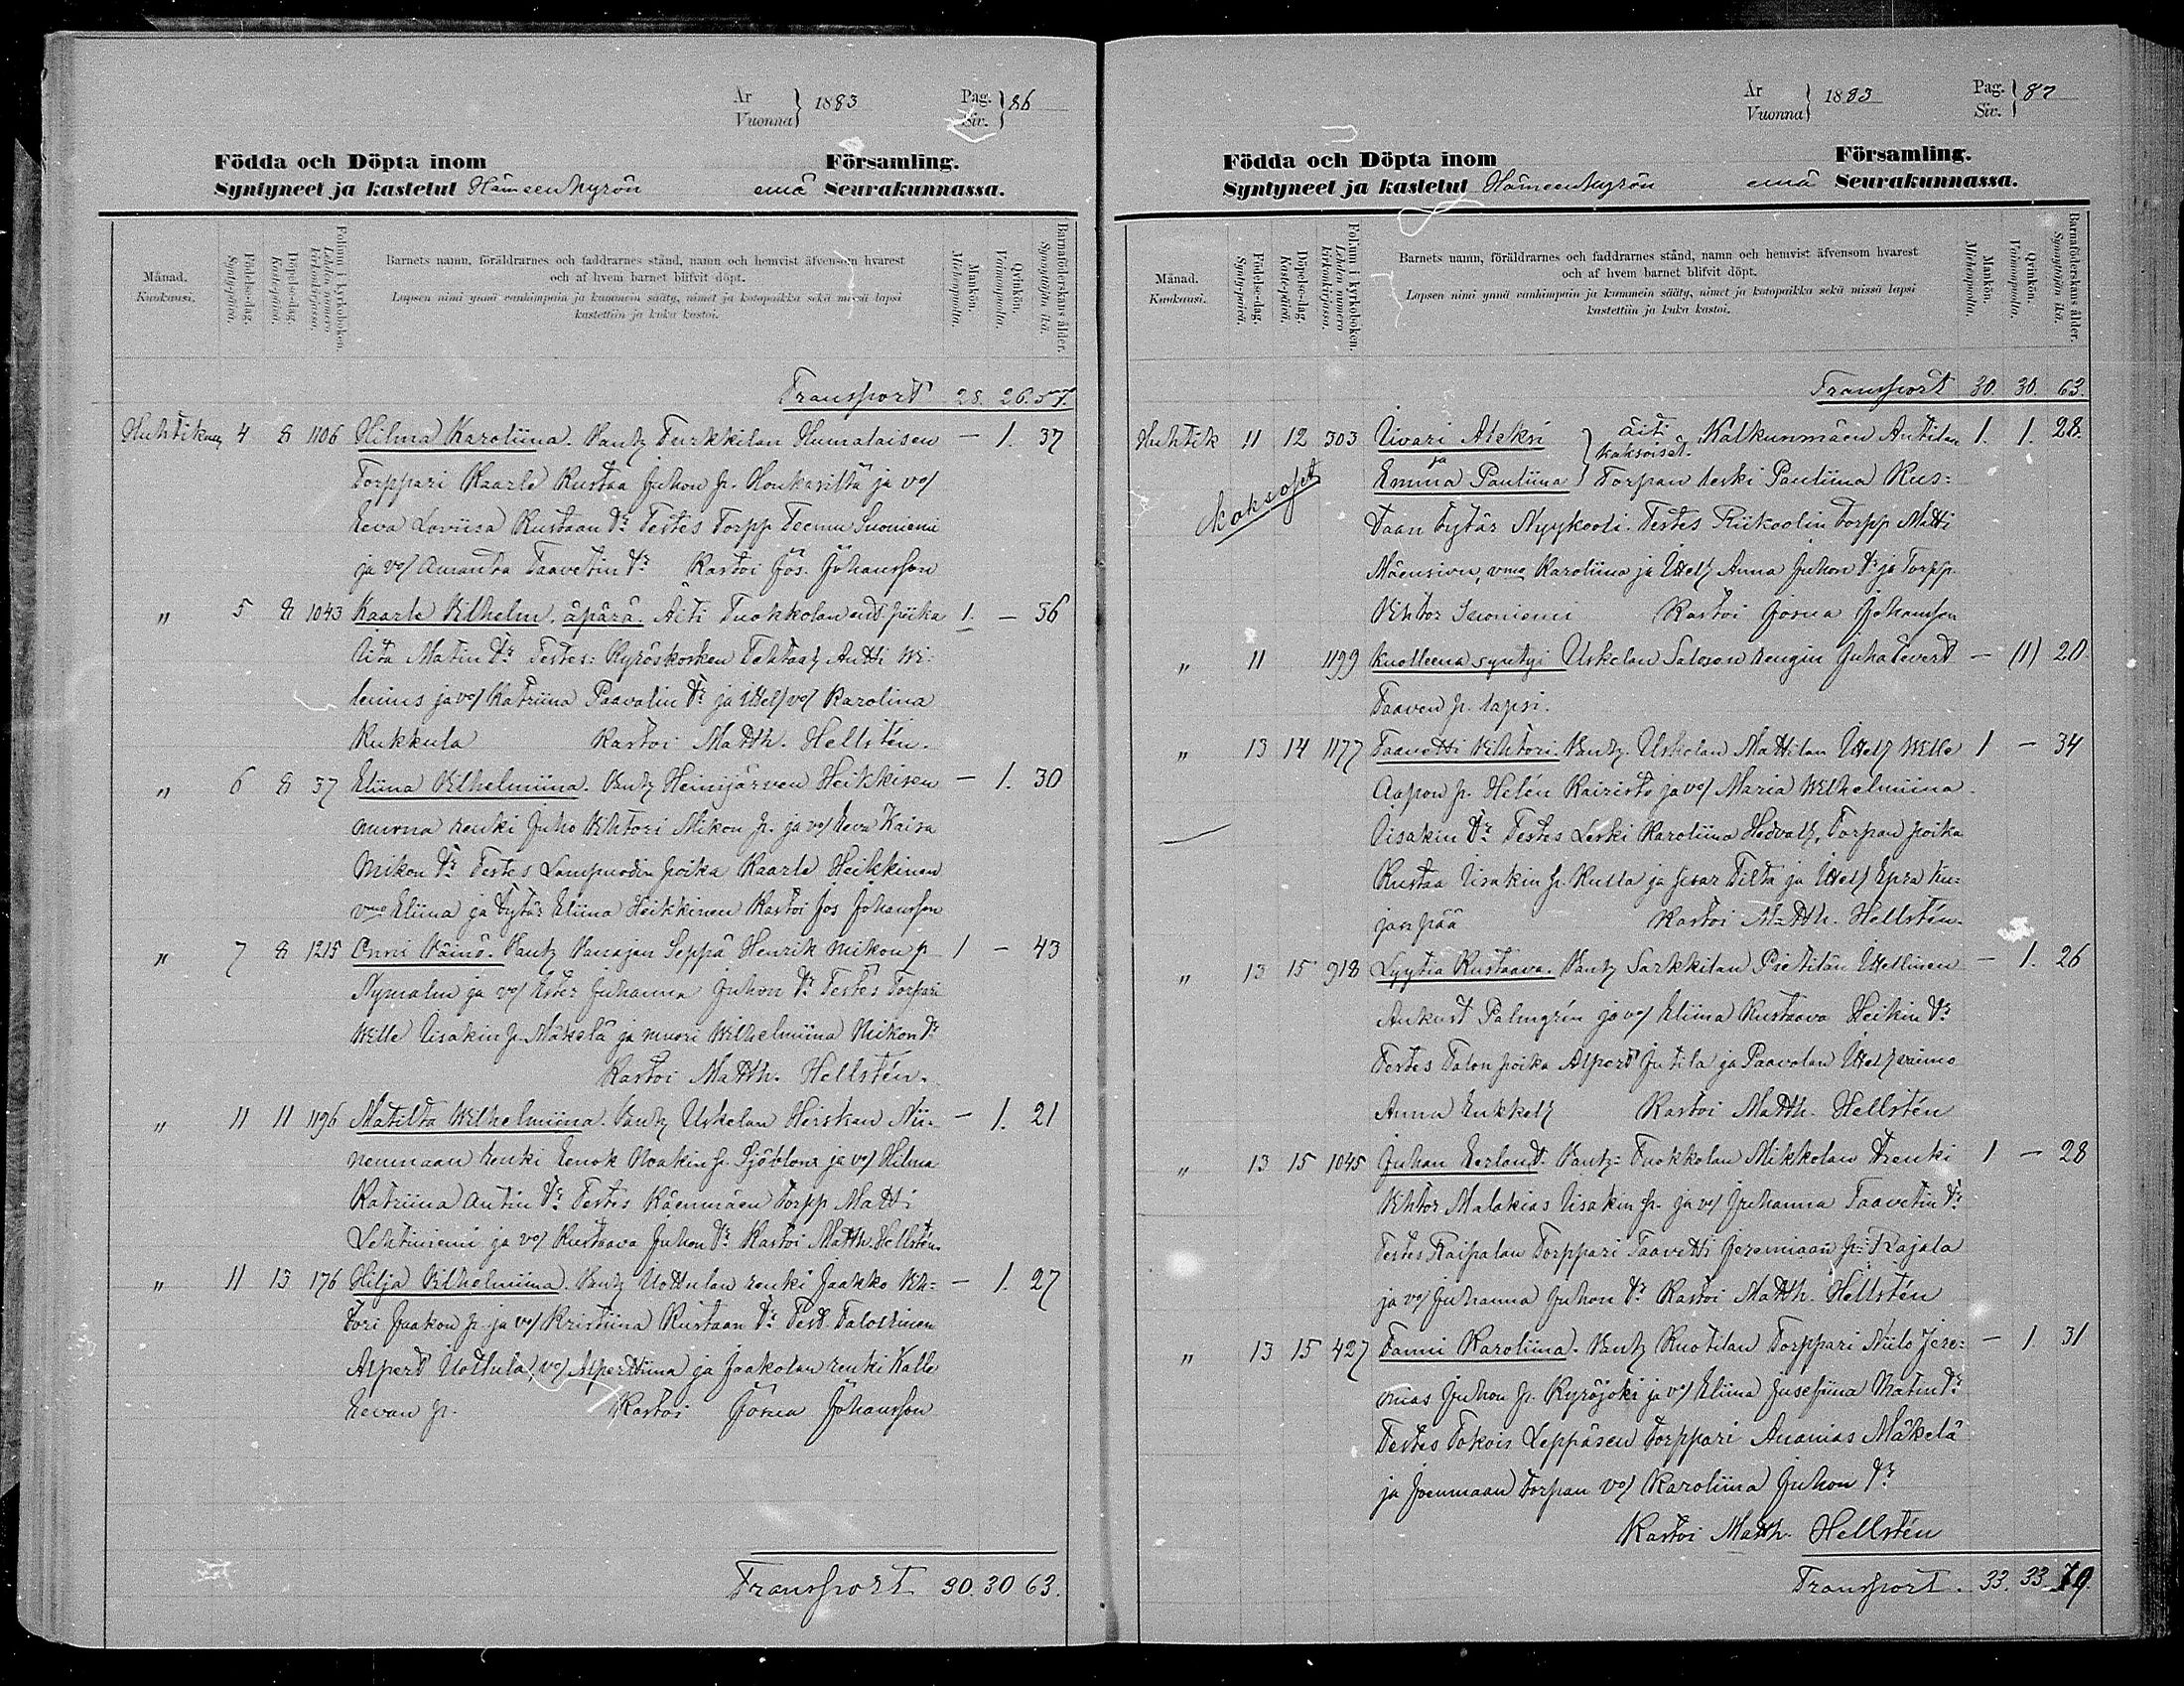 År
Vuonna } 1883
Pag.
Siv. } 86
Födda och Döpta inom Församling.
Syntyneet ja kastetut Hämeenkyrön emä Seurakunnassa.
Månad.
Kuukausi.
Födelse-dag.
Syntypäivä.
Döpelse-dag.
Kastepäivä.
Folium i kyrkoboken.
Lehden numero kirkonkirjassa.
Barnets namn, föräldrarnes och faddrarnes stånd, namn och hemvist äfvensom hvarest
och af hvem barnet blifvit döpt.
Lapsen nimi ynnä vanhimpain ja kummein sääty, nimet ja kotopaikka sekä missä lapsi
kastettiin ja kuka kastoi.
Mankön.
Miehenpuolta.
Qvinkön.
Vaimonpuolta.
Barnaföderskans ålder.
Synnyttäjän ikä.
Transport 28. 26. 57.
Huhtikuu 4 8 1106 Hilma Karoliina. Vanh. Turkkilan Humalaisen — 1. 37
Torppari Kaarle Kustaa Juhon p. Honkasilta ja vo/
Eeva Loviisa Kustaan tr Testes Torpp Teemu Suoniemi
ja vo/ Amanta Taavetin tr Kastoi Jos. Johansson
" 5 8 1043 Kaarle Vilhelm, äpärä. Äiti Tuokkolan ent. piika 1. — 36
Iita Matin tr Testes: Kyröskosken Tehtaan Antti Wi-
lenius ja vo/ Katriina Paavalin tr ja Itell vo/ Karolina
Kukkula Kastoi Matth. Hellstén.
" 6 8 37 Eliina Vilhelmiina. Vanh Heinijärven Heikkisen — 1. 30
muona renki Juho Vihtori Mikon p. ja vo/ Eeva Kaisa
Mikon tr Testes Lampuodin poika Kaarle Heikkinen
vmo Eliina ja tytär Eliina Heikkinen Kastoi Jos Johansson
" 7 8 1215 Onni Väinö. Vanh Vanajan Seppä Henrik Mikon p 1 — 43
Nymalm ja vo/ Ester Juhanna Juhon tr Testes Torpari
Wille Iisakin p. Mäkelä ja muori Wilhelmiina Mikon tr
Kastoi Matth. Hellstén.
" 11 11 1196 Matilta Wilhelmiina. Vanh Uskelan Heiskan Nii- — 1. 21
nenmaan renki Eenok Noakin p. Sjöblom ja vo/ Hilma
Katriina Antin tr Testes Käenmäen Torpp Matti
Lehtiniemi ja vo/ Kustaava Juhon tr Kastoi Matth. Hellstén.
" 11 13 176 Hilja Vilhelmiina. Vanh Uottulan renki Jaakko Vih- — 1. 27
tori Jaakon p. ja vo/ Kristiina Kustaan tr Test. Talollinen
Alpert Uottula, vo/ Alperttiina ja Jaakolan renki Kalle
Eevan p. Kastoi Josua Johansson
Transport 30. 30 63.
År
Vuonna } 1883
Pag.
Siv. } 87
Födda och Döpta inom Församling.
Syntyneet ja kastetut Hämeenkyrön emä Seurakunnassa.
Månad.
Kuukausi.
Födelse-dag.
Syntypäivä.
Döpelse-dag.
Kastepäivä.
Folium i kyrkoboken.
Lehden numero kirkonkirjassa.
Barnets namn, föräldrarnes och faddrarnes stånd, namn och hemvist äfvensom hvarest
och af hvem barnet blifvit döpt.
Lapsen nimi ynnä vanhimpain ja kummein sääty, nimet ja kotopaikka sekä missä lapsi
kastettiin ja kuka kastoi.
Mankön.
Miehenpuolta.
Qvinkön.
Vaimonpuolta.
Barnaföderskans ålder.
Synnyttäjän ikä.
Transport 30. 30. 63.
Huhtik 11 12 303 Iivari Aleksi } äiti Kalkunmäen Antilan 1. 1. 28.
ja kaksoiset.
Emma Pauliina } Torpan leski Pauliina Kus-
Kaksoset
taan tytär Nyykooli. Testes Riikoolin torpp Matti
Mäensivu, vmo Karoliina ja Itell Anna Juhon tr ja Torpp.
Vihtor Suoniemi Kastoi Josua Johansson
" 11 1199 Kuolleena syntyi Uskelan Saloson rengin Juha Evert — (1) 20.
Taaven p. lapsi.
" 13 14 1177 Taavetti Vihtori. Vanh. Uskelan Mattilan Itell Wille 1 — 34
Aapon p. Helén Kairisto ja vo/ Maria Wilhelmiina
Iisakin tr Testes Leski Karoliina Hedvall, Torpan poika
Kustaa Iisakin p. Kulla ja sisar Tilta ja Itell Epra Ku-
janpää Kastoi Matth. Hellstén.
" 13 15 918 Lyytia Kustaava. Vanh Sarkkilan Pietilän Itellinen — 1. 26
Aukust Palmgrén ja vo/ Eliina Kustaava Heikin tr
Testes Talon poika Alpert Jutila ja Paavolan Itell vaimo
Anna Enkkell Kastoi Matth. Hellstén
" 13 15 1045 Juhan Eerland. Vanh: Tuokkolan Mikkolan trenki 1 — 28
Vihtor Malakias Iisakin p. ja vo/ Juhanna Taavetin tr
Testes Raipalan Torppari Taavetti Jeremiaan p. Rajala
ja vo/ Juhanna Juhon tr Kastoi Matth. Hellstén
" 13 15 427 Fanni Karoliina. Vanh Kuotilan Torppari Niilo Jere- — 1. 31
mias Juhon p. Kyröjoki ja vo/ Eliina Jusefiina Matin tr
Testes Tokois Leppäsen torppari Ananias Mäkelä
ja Joenmaan torpan vo/ Karoliina Juhon tr
Kastoi Matth. Hellstén
Transport. 33. 33 79.